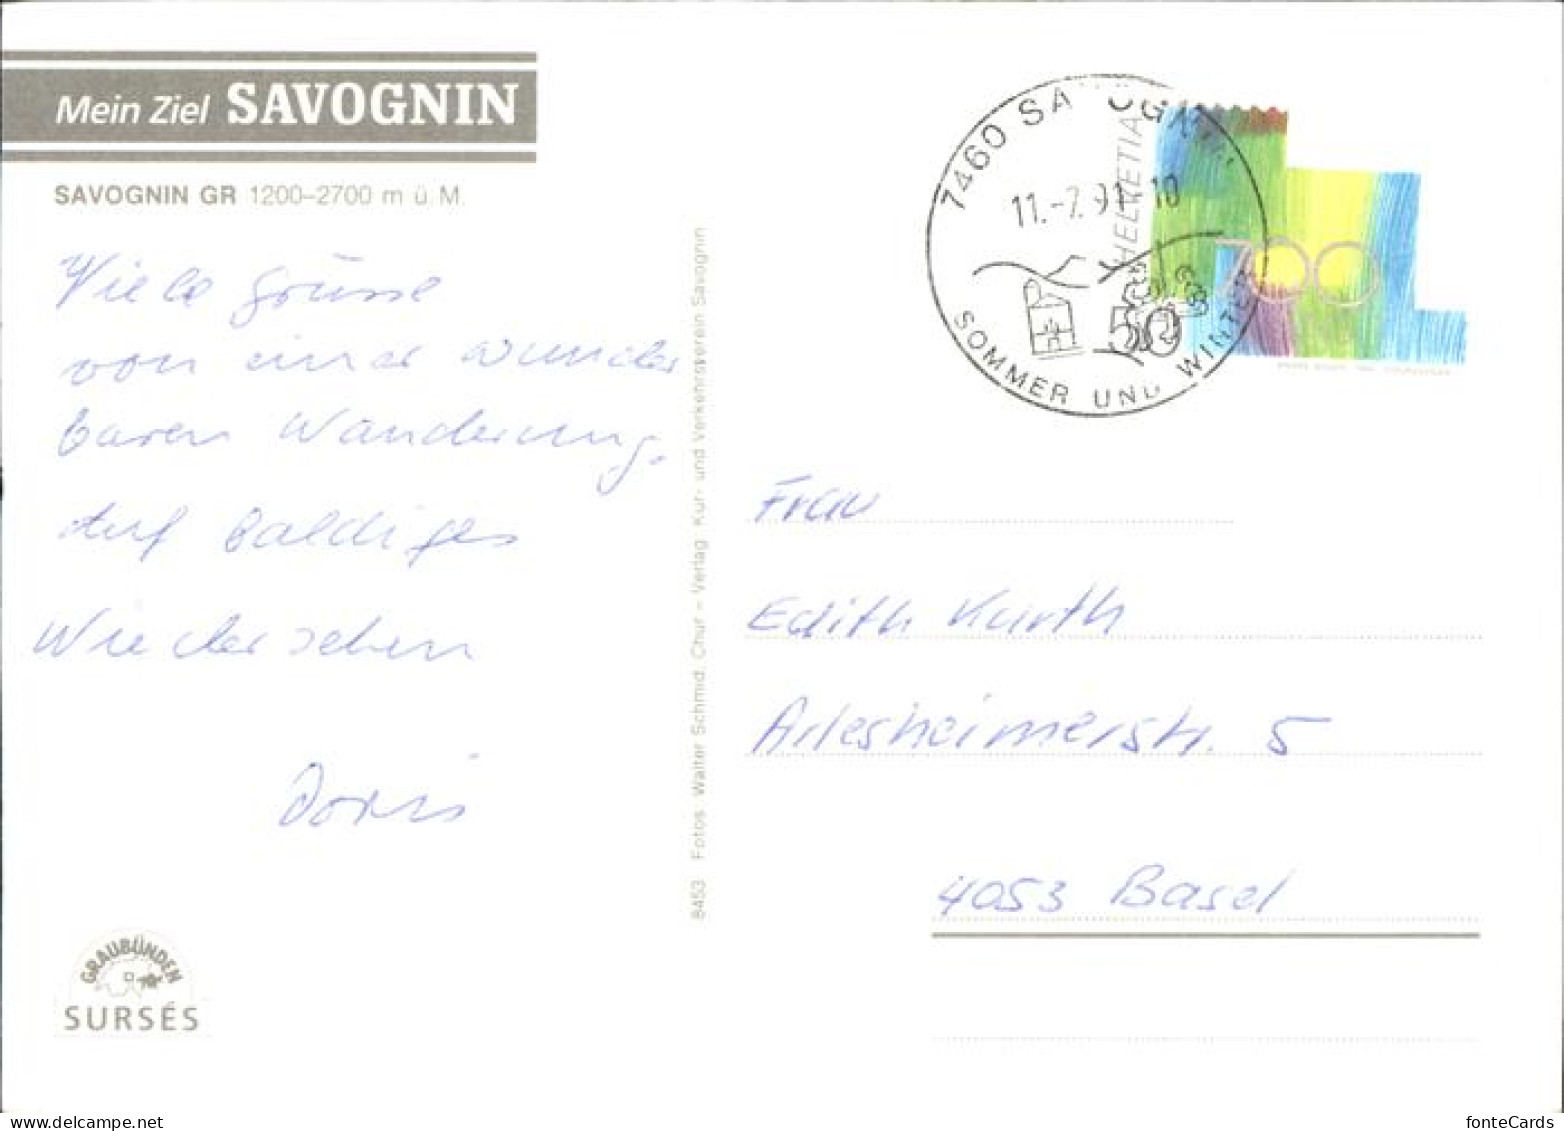 Mein Ziel SAVOGNIN
SAVOGNIN GR 1200–2700 m ü. M.
Viele Grüsse
von einer wunder
baren Wanderung.
Auf baldiges
Wiedersehen
Doris
GRAUBÜNDEN
SURSÉS
8453 Fotos Walter Schmid, Chur – Verlag Kur- und Verkehrsverein Savognin
7460 SAVOGNIN
11.-7.91 10
SOMMER UND WINTER
HELVETIA
700
50
Frau
Edith Kurth
Arlesheimerstr. 5
4053 Basel
delcampe.net
fonteCards